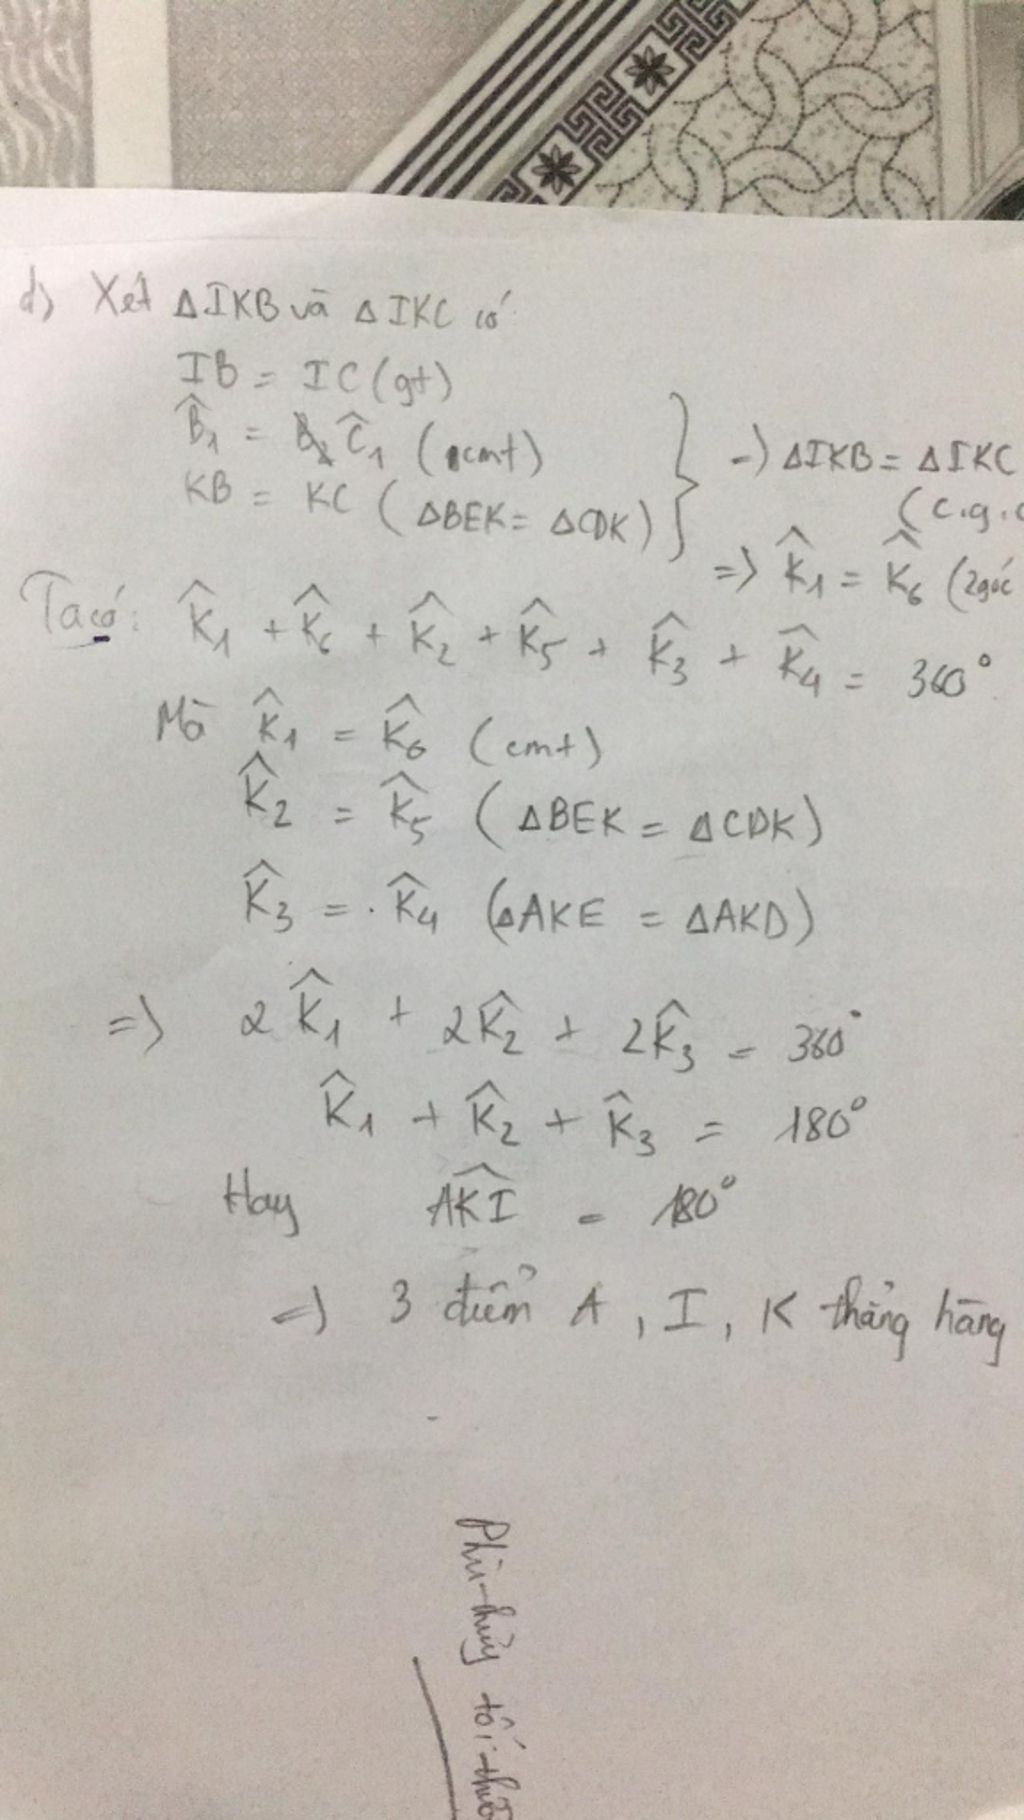 d) Xét ΔIKB và ΔIKC có
IB = IC (gt)
B̂₁ = Ĉ₁ (cmt)
KB = KC (ΔBEK = ΔCDK)
=) ΔIKB = ΔIKC
(c.g.c
=> K̂₁ = K̂₆ (2góc
Ta có: K̂₁ + K̂₆ + K̂₂ + K̂₅ + K̂₃ + K̂₄ = 360°
Mà K̂₁ = K̂₆ (cmt)
K̂₂ = K̂₅ (ΔBEK = ΔCDK)
K̂₃ = K̂₄ (ΔAKE = ΔAKD)
=> 2K̂₁ + 2K̂₂ + 2K̂₃ = 360°
K̂₁ + K̂₂ + K̂₃ = 180°
Hay AKI = 180°
=) 3 điểm A, I, K thẳng hàng
Phù thủy tối